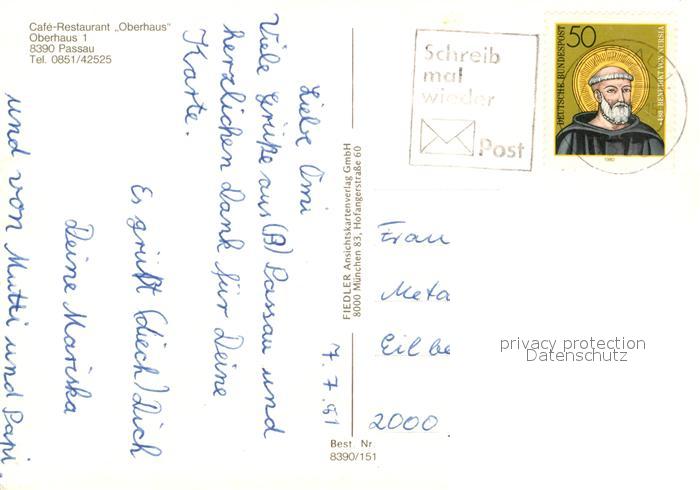 Café-Restaurant „Oberhaus"
Oberhaus 1
8390 Passau
Tel. 0851/42525
7.7.81
Liebe Omi
Viele Grüße aus (B) Passau und
herzlichen Dank für Deine
Karte.
Es grüßt (diech) Dich
Deine Mariska
und von Mutti und Papi.
FIEDLER Ansichtskartenverlag GmbH
8000 München 83, Hofangerstraße 60
Best. Nr.
8390/151
Schreib
mal
wieder
Post
50
DEUTSCHE BUNDESPOST
BENEDIKT VON NURSIA
1980
Frau
Meta
Eilbe
2000
privacy protection
Datenschutz